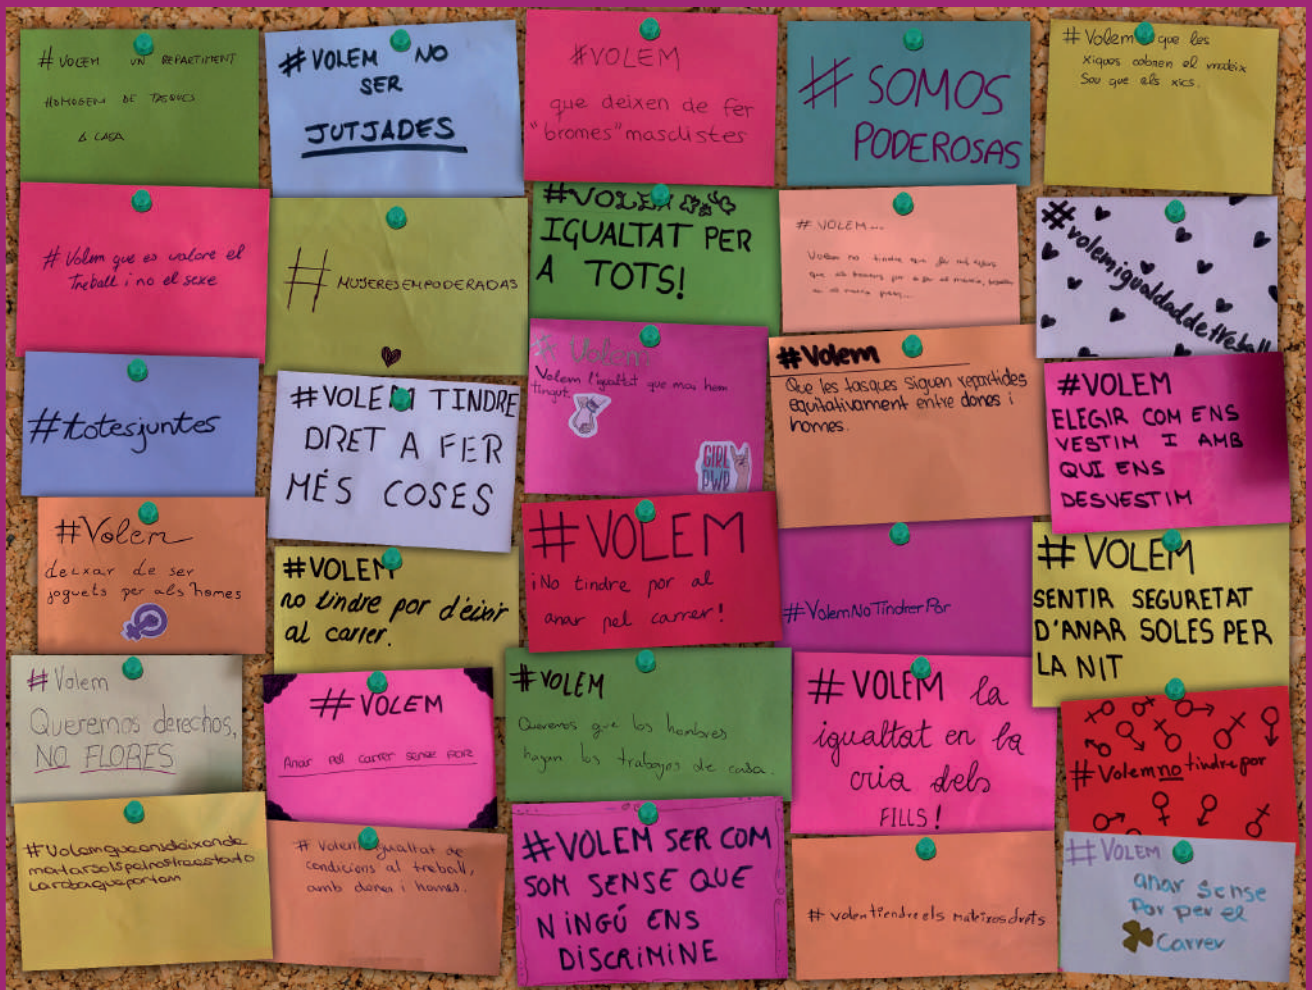 # VOLEM UN REPARTIMENT
HOMOGENI DE TASQUES
A CASA
#VOLEM NO
SER
JUTJADES
#VOLEM
que deixen de fer
"bromes" masclistes
# SOMOS
PODEROSAS
# Volem que les
xiques cobren el mateix
Sou que els xics.
# Volem que es valore el
treball i no el sexe
# MUJERESEMPODERADAS
#VOLEM
IGUALTAT PER
A TOTS!
# VOLEM...
Volem no tindre que
#volemigualdaddetreball
#totesjuntes
#VOLEM TINDRE
DRET A FER
MÉS COSES
# Volem
Volem l'igualtat que mai hem
tingut.
GIRL
PWR
#Volem
Que les tasques siguen repartides
equitativament entre dones i
homes.
#VOLEM
ELEGIR COM ENS
VESTIM I AMB
QUI ENS
DESVESTIM
#Volem
deixar de ser
joguets per als homes
#VOLEM
no tindre por d'eixir
al carrer.
#VOLEM
¡No tindre por al
anar pel carrer!
#VolemNoTindrerPor
# VOLEM
SENTIR SEGURETAT
D'ANAR SOLES PER
LA NIT
# Volem
Queremos derechos,
NO FLORES
#VOLEM
Anar pel carrer sense POR
#VOLEM
Queremos que los hombres
hagan los trabajos de casa.
# VOLEM la
igualtat en la
cria dels
FILLS!
#Volemnotindrepor
#Volemqueensdeixende
matarsolspelnostraestario
Larobaqueportem
# Volem igualtat de
condicions al treball,
amb dones i homes.
#VOLEM SER COM
SOM SENSE QUE
NINGÚ ENS
DISCRIMINE
# volemtiendreels mateixosdrets
#VOLEM
anar sense
Por per el
Carrer